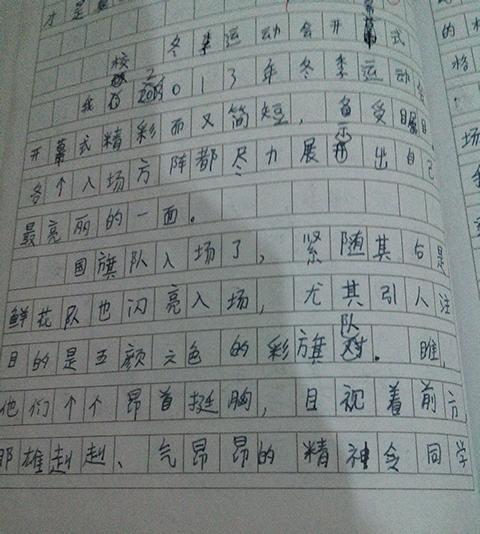 才是
冬季运动会开幕式
我校2013年冬季运动会
开幕式精彩而又简短，备受瞩目
各个入场方阵都尽力展示出自己
最亮丽的一面。
国旗队入场了，紧随其后是
鲜花队也闪亮入场，尤其引人注
目的是五颜六色的彩旗队。瞧，
他们个个昂首挺胸，目视着前方，
那雄赳赳、气昂昂的精神令同学
的
场